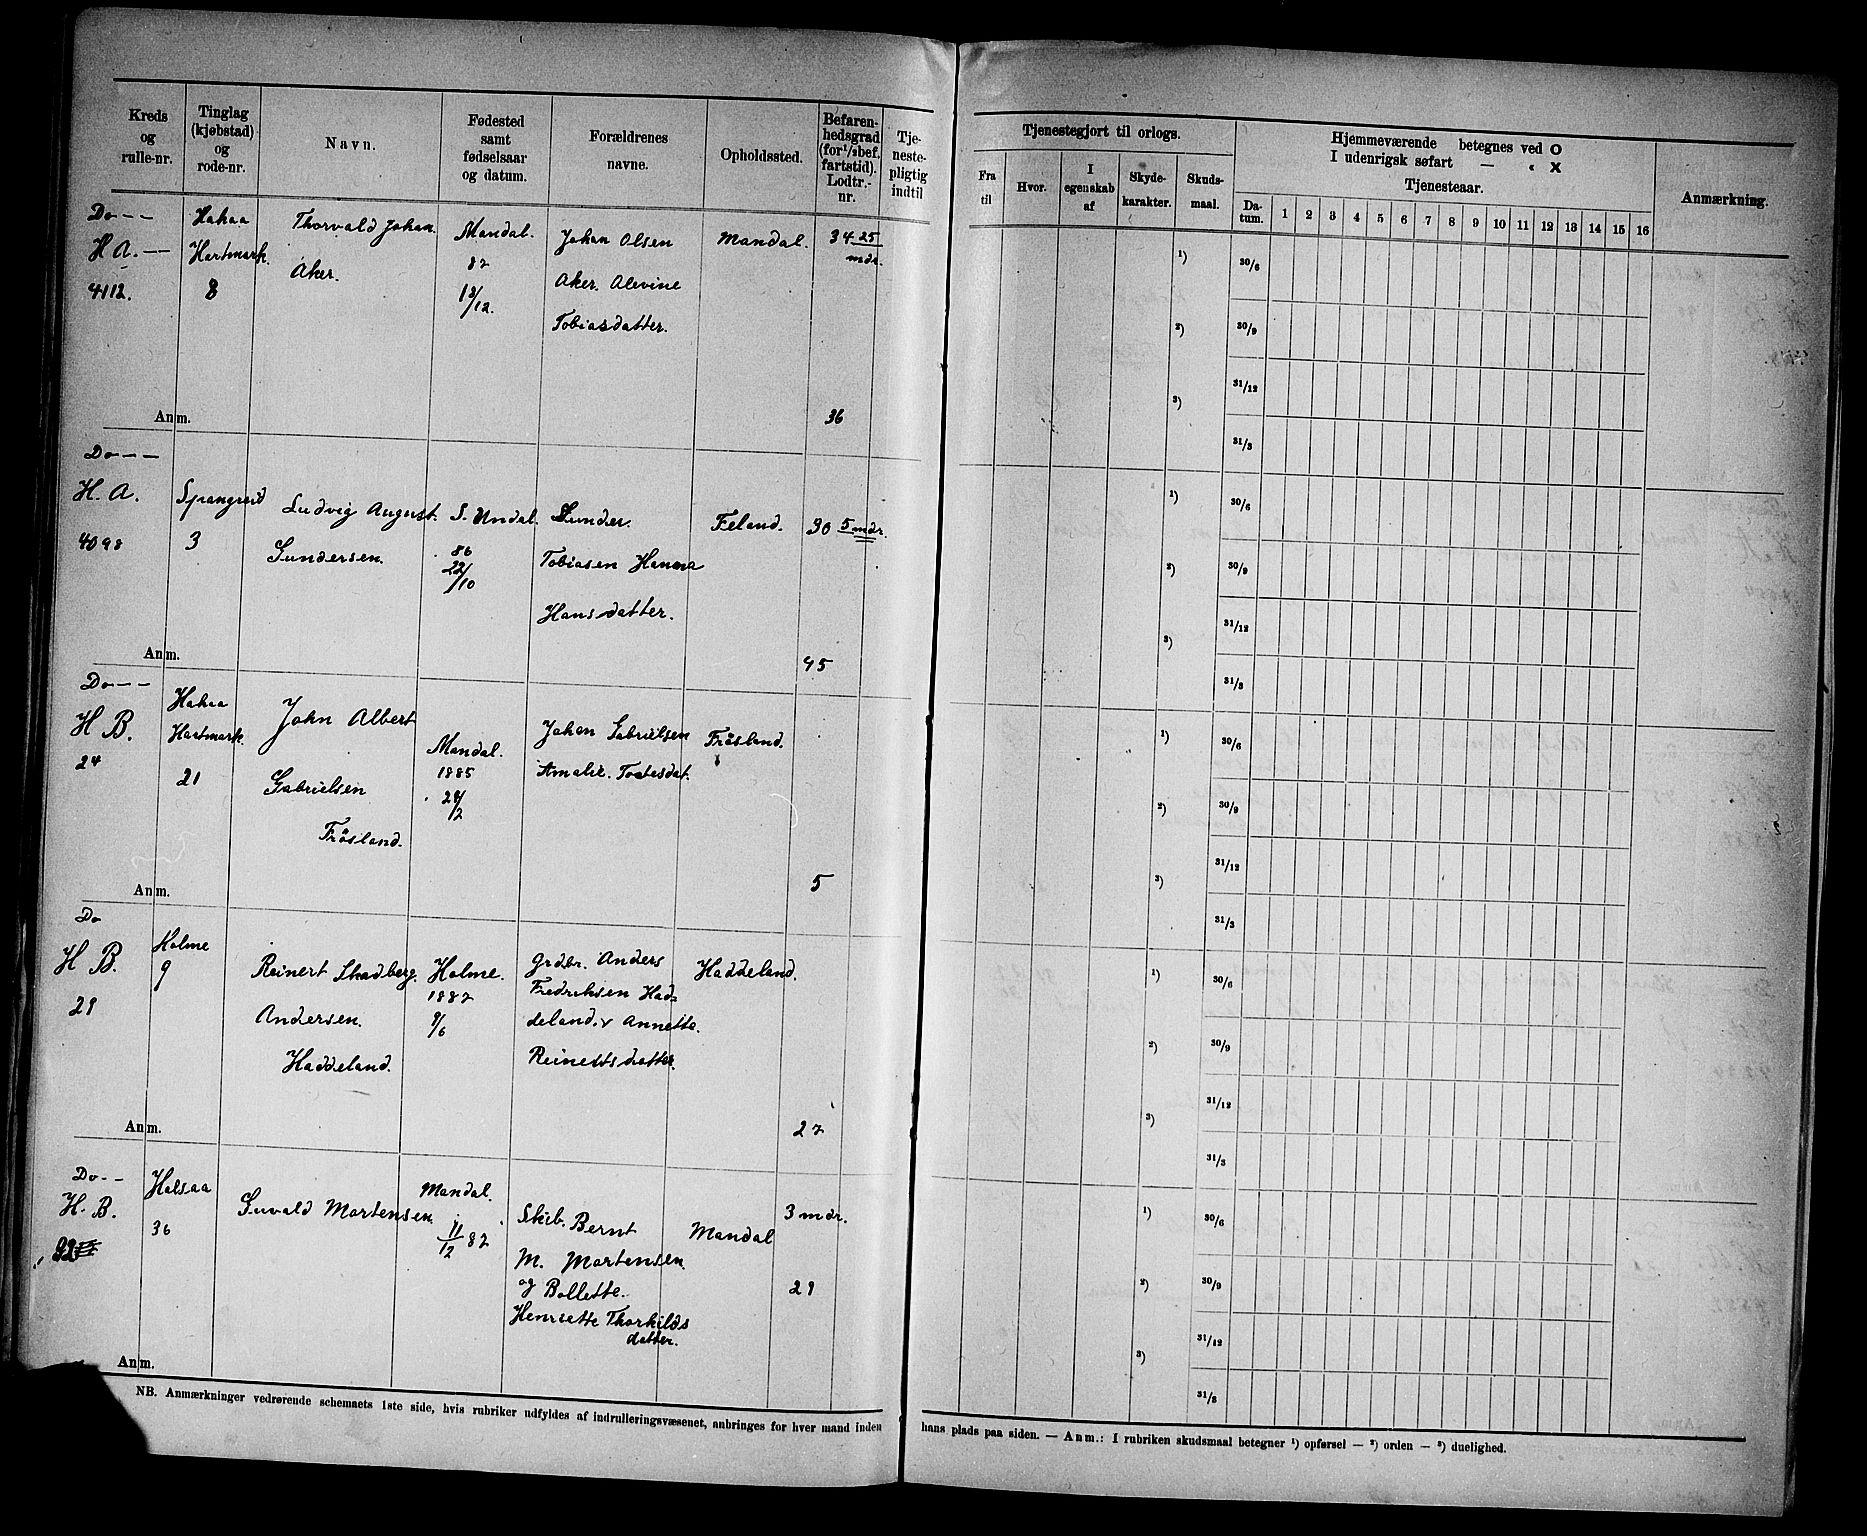 Kreds
og
rulle-nr.
Tinglag
(kjøbstad)
og
rode-nr.
Navn.
Fødested
samt
fødselsaar
og datum.
Forældrenes
navne.
Opholdssted.
Befaren-
hedsgrad
(for 1/2 bef.
fartstid).
Lodtr.-
nr.
Tje-
neste-
pligtig
indtil
Tjenestegjort til orlogs.
Fra
til
Hvor.
I
egenskab
af
Skyde-
karakter.
Skuds-
maal.
Hjemmeværende betegnes ved O
I udenrigsk søfart — « X
Tjenesteaar.
Da-
tum.
1 2 3 4 5 6 7 8 9 10 11 12 13 14 15 16
Anmærkning.
Do - -
H A. —
4112.
Hartmark.
8
Thorvald Johan
Aker.
Mandal.
82
18/12.
Johan Olsen
Aker. Alevine
Tobiasdatter.
Mandal.
34 25
mdr.
36
Anm.
1) 30/6
2) 30/9
3) 31/12
31/3
Do - -
H. A.
4098
Spangreid
3
Ludvig August.
Gundersen.
S. Undal.
86
22/10
Gunder
Tobiasen Hanna
Hansdatter.
Feland.
30 5 mdr.
45
Anm.
1) 30/6
2) 30/9
3) 31/12
31/3
Do - -
H B.
24
Hartmark.
21
John Albert
Gabrielsen
Fröisland.
Mandal.
1885
24/2
Johan Gabrielsen
Amalie.
Fröisland.
5
Anm.
1) 30/6
2) 30/9
3) 31/12
31/3
Do
H B.
29
Holme
9
Reinert Skadberg.
Andersen.
Haddeland.
Holme.
1887
9/6
grdbr. Anders
Fredriksen Had-
deland. v Annette.
Reinertsdatter.
Haddeland.
27
Anm.
1) 30/6
2) 30/9
3) 31/12
31/3
Do - -
H. B.
Halsaa
36
Guvald Mortensen.
Mandal.
11/12 82
Skib. Bernt
M. Mortensen
og Bollette.
Henriette Thorkilds
datter.
Mandal
3 mdr.
29
Anm.
1) 30/6
2) 30/9
3) 31/12
31/3
NB. Anmærkninger vedrørende schemaets 1ste side, hvis rubriker udfyldes af indrulleringsvæsenet, anbringes for hver mand inden hans plads paa siden. — Anm.: I rubriken skudsmaal betegner 1) opførsel — 2) orden — 3) duelighed.